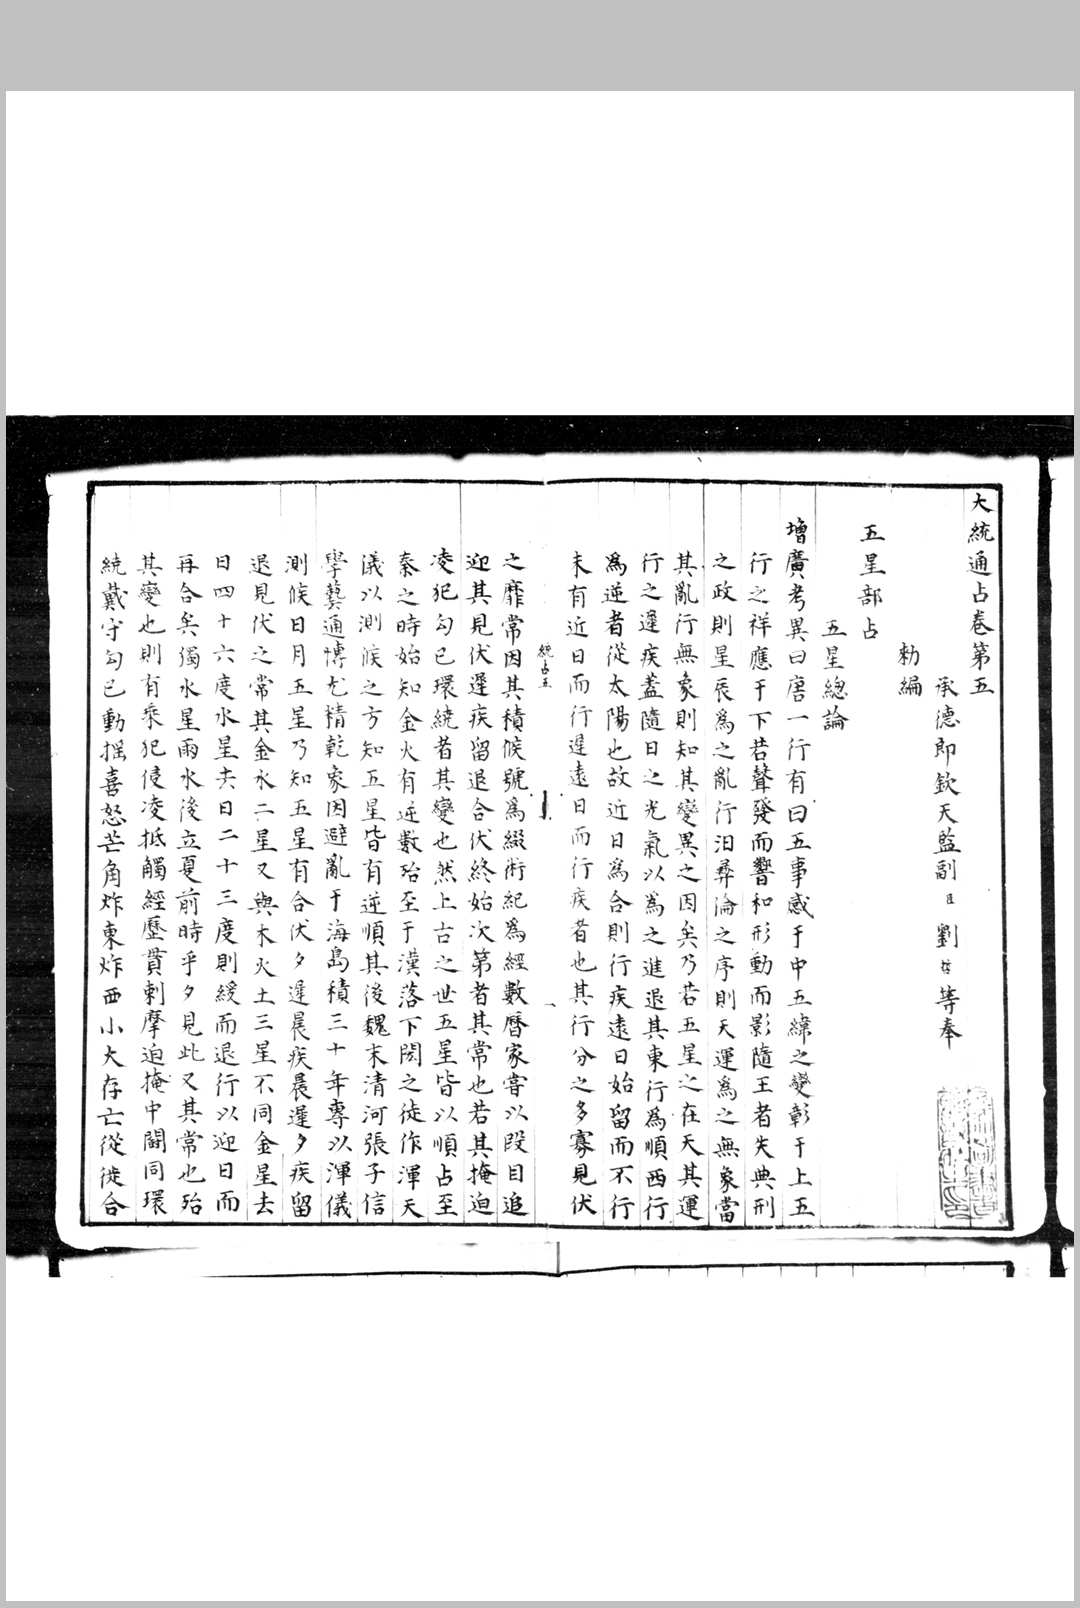 大統通占卷第五
承德郎欽天監副臣劉等奉
勑編
五星部占
五星總論
增廣考異曰唐一行有曰五事感于中五緯之變彰于上五
行之祥應于下若聲發而響和形動而影隨王者失典刑
之政則星辰爲之亂行汩彝倫之序則天運爲之無象當
其亂行無象則知其變異之因矣乃若五星之在天其運
行之遲疾蓋隨日之光氣以爲之進退其東行爲順西行
爲逆者從太陽也故近日爲合則行疾遠日始留而不行
未有近日而行遲遠日而行疾者也其行分之多寡見伏
統占五
一
之靡常因其積候號爲綴術紀爲經數曆家嘗以段目追
迎其見伏遲疾留退合伏終始次第者其常也若其掩迫
凌犯勾已環繞者其變也然上古之世五星皆以順占至
秦之時始知金火有逆數殆至于漢落下閎之徒作渾天
儀以測候之方知五星皆有逆順其後魏末清河張子信
學藝通博尤精乾象因避亂于海島積三十年專以渾儀
測候日月五星乃知五星有合伏夕遲晨疾晨遲夕疾留
退見伏之常其金水二星又與木火土三星不同金星去
日四十六度水星去日二十三度則緩而退行以迎日而
再合矣獨水星雨水後立夏前時乎夕見此又其常也殆
其變也則有乘犯侵凌抵觸經歷貫刺摩迫掩中關同環
繞戴守勾已動搖喜怒芒角炸東炸西小大存亡從徙合